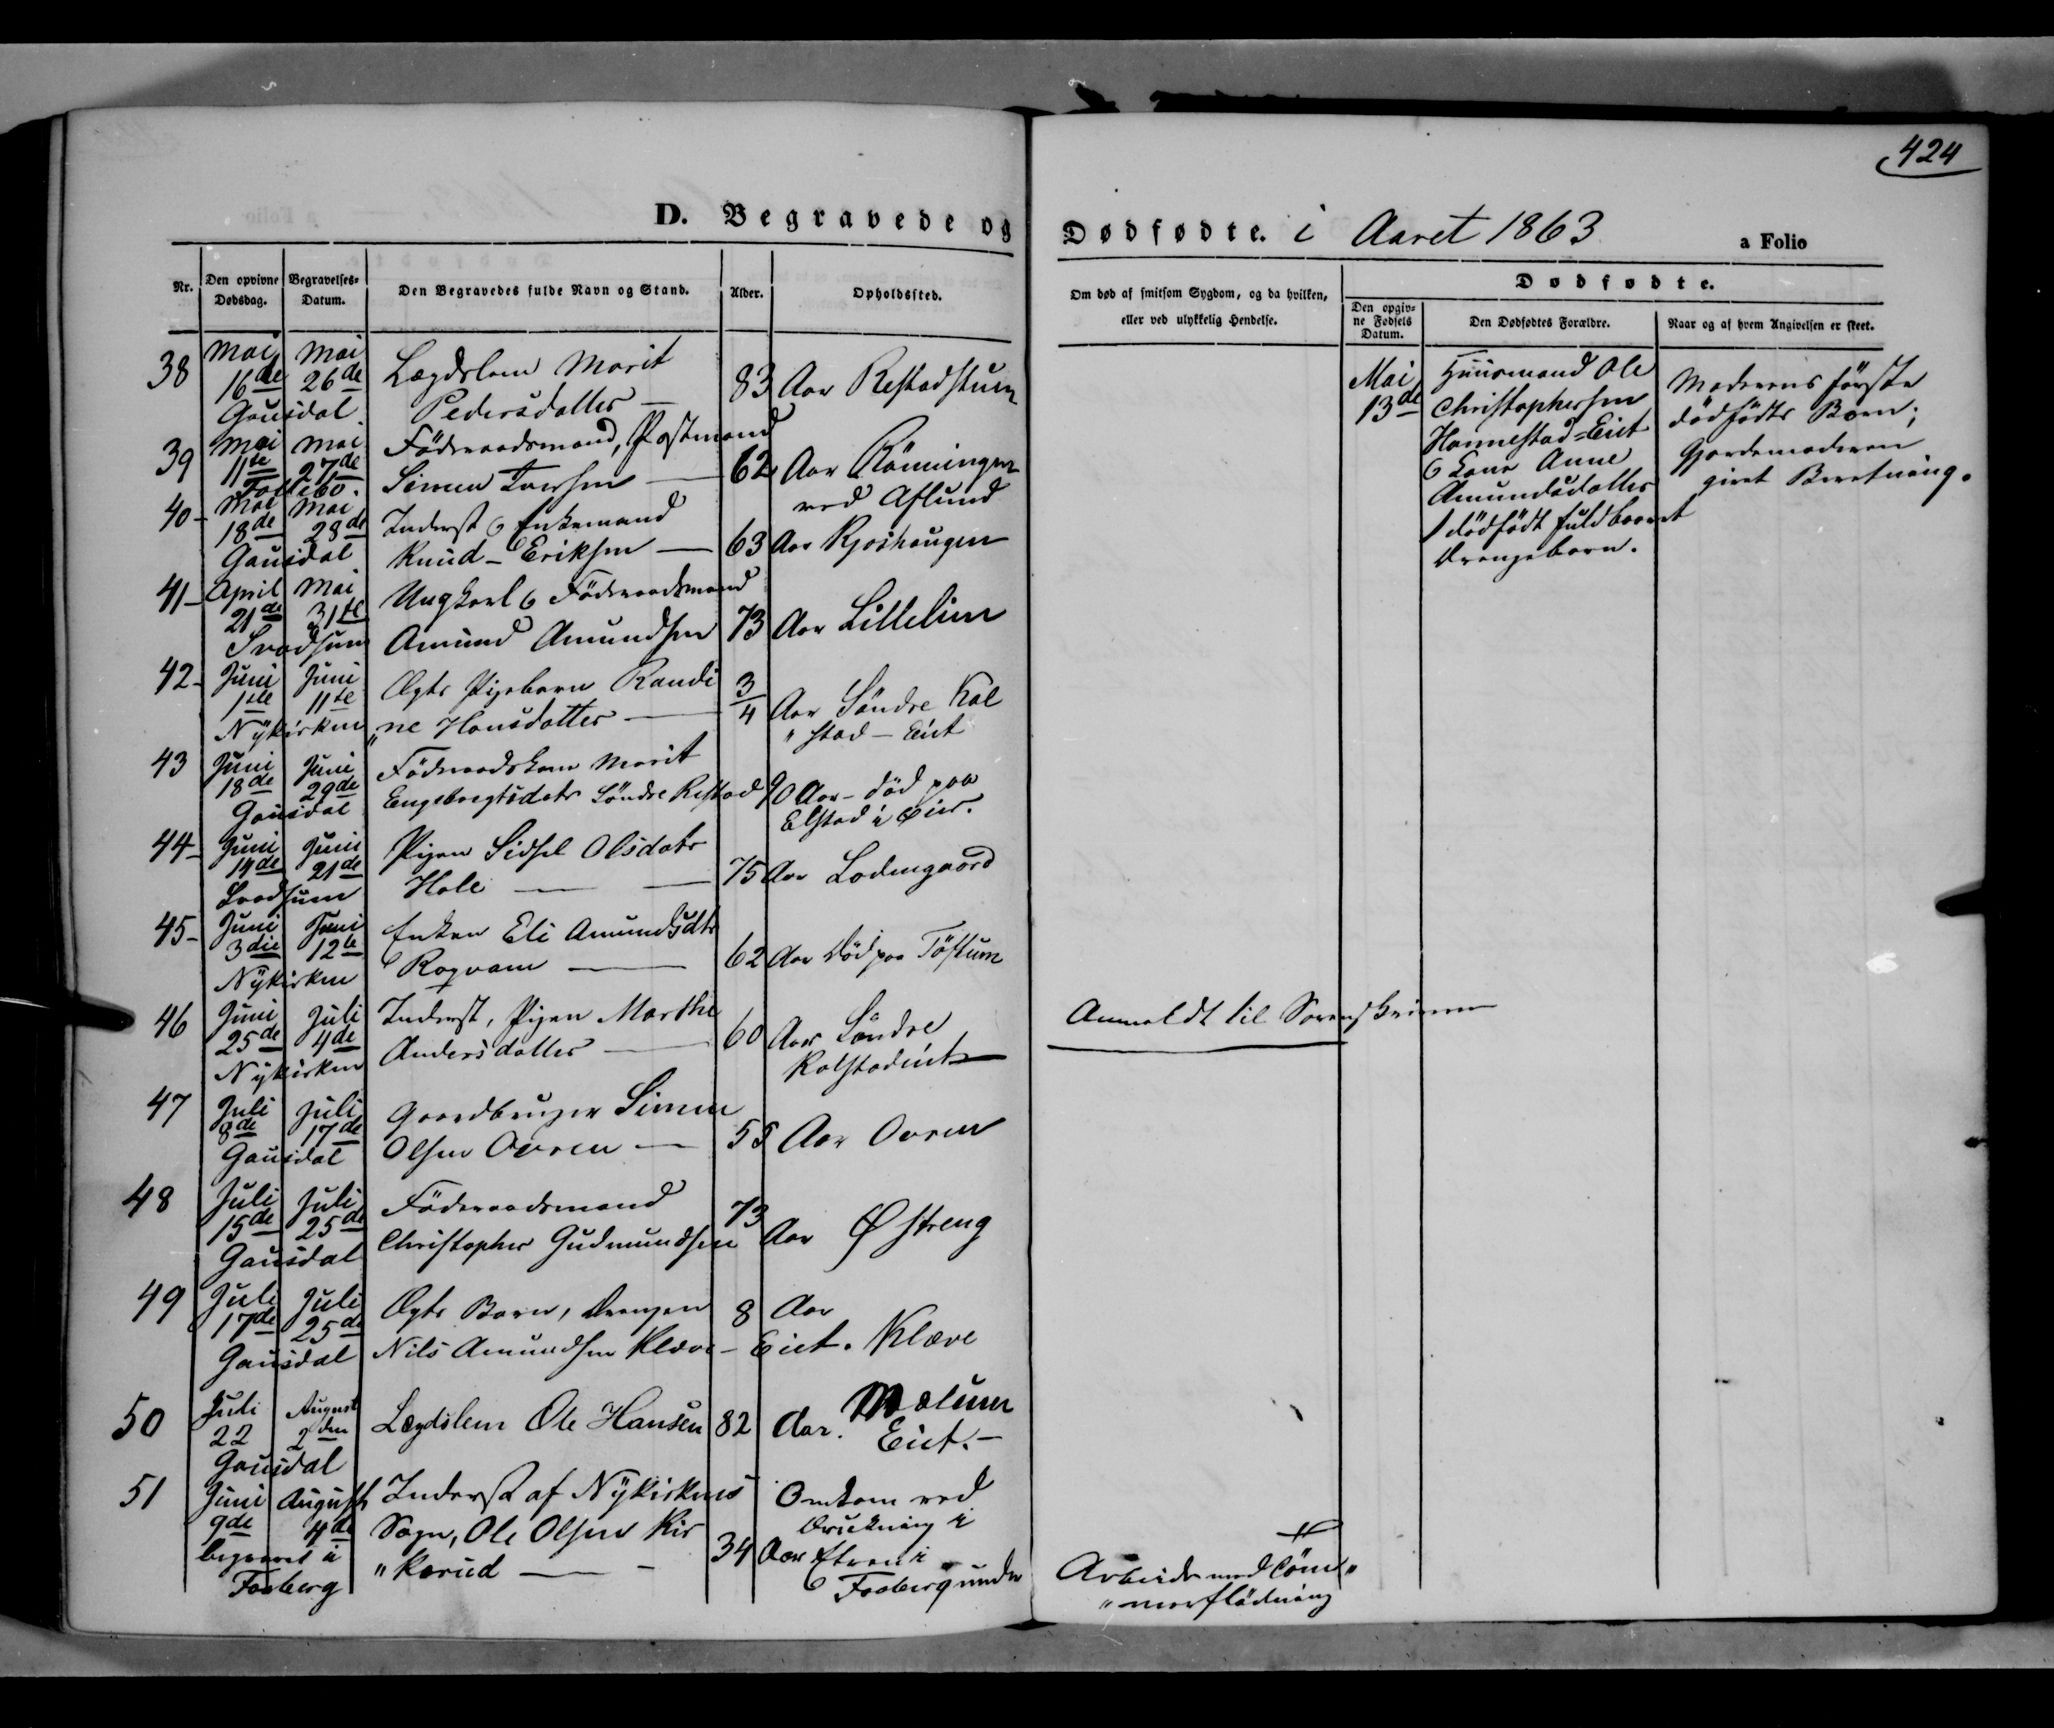 424
D. Begravede og
Dødfødte. i Aaret 1863
a Folio
Nr.
Den opgivne
Dødsdag.
Begravelses-
Datum.
Den Begravedes fulde Navn og Stand.
Alder.
Opholdssted.
Om død af smitsom Sygdom, og da hvilken,
eller ved ulykkelig Hendelse.
Dødfødte.
Den opgiv-
ne Fødsels
Datum.
Den Dødfødtes Forældre.
Naar og af hvem Angivelsen er skeet.
38 Mai Mai Lægdslem Marit
16de 26de Pedersdatter — 83 Aar Restadstuen
Gausdal
39 Mai Mai Föderaadsmand, Postmand
11te 27de Simen Iversen — 62 Aar Rönningen
Follebo. ved Aflund
40 - Mai Mai Inderst & Enkemand
18de 28de Knud - Eriksen — 63 Aar Kjoshaugen
Gausdal
41 - April Mai Ungkarl & Föderaadsmand
21de 31te Amund Amundsen 73 Aar Lillelien
Svadsum
42 - Juni Juni Ægte Pigebarn Randi 3/4
1ste 11te „ne Hansdatter — Aar Söndre Kal
Nykirken „stad - Eiet
43 Juni Juni Föderaadskone Marit
18de 29de Engebregtsdatr Söndre Restad 90 Aar - död paa
Gausdal Elstad i Öier.
44 - Juni Juni Pigen Sidsel Olsdatr
14de 21de Hole — — 75 Aar Lodengaard
Svadsum
45 - Juni Juni Enken Eli Amundsdtr
3die 12te Rogvam — 62 Aar död paa Töftum
Nykirken
46 Juni Juli Inderst, Pigen Marthe
25de 4de Andersdatter — 60 Aar Söndre
Nykirken Kalstadeiet
47 Juli Juli Gaardbruger Simen
8de 17de Olsen Ovren — 55 Aar Ovren
Gausdal
48 Juli Juli Föderaadsmand 73
15de 25de Christopher Gudmundsen Aar Østreng
Gausdal
49 Juli Juli Ægte Barn, Drengen 8 Aar
17de 25de Nils Amundsen Klæve - Eiet. Klæve
Gausdal
50 Juli August
22 2den Lægdslem Ole Hansen 82 Aar. Mælum
Gausdal Eiet. -
51 Juni August Inderst af Nykirkens Omkom ved
9de 4de Sogn, Ole Olsen Kir Drukning i
begravet i „kerud — 34 Aar Elven i
Faaberg Faaberg under
Mai
13de
Huusmand Ole
Christophersen
Hannestad=Eiet
& Kone Anne
Amundsdatter
1 dödfödt fuldbaaret
Drengebarn.
Moderens förste
dödfödte Barn;
Gjordemoderen
givet Beretning.
Anmeldt til Sorenskriveren
Arbeide med Töm„
„merflödning